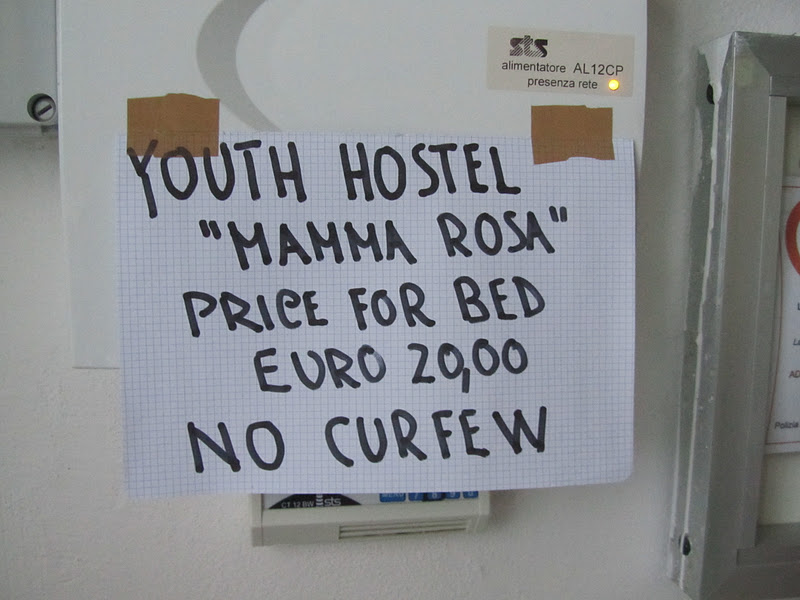 sts
alimentatore AL12CP
presenza rete
YOUTH HOSTEL
"MAMMA ROSA"
PRICE FOR BED
EURO 20,00
NO CURFEW
CT 12 BW sts
MENU 7 8 9 0
Polizia